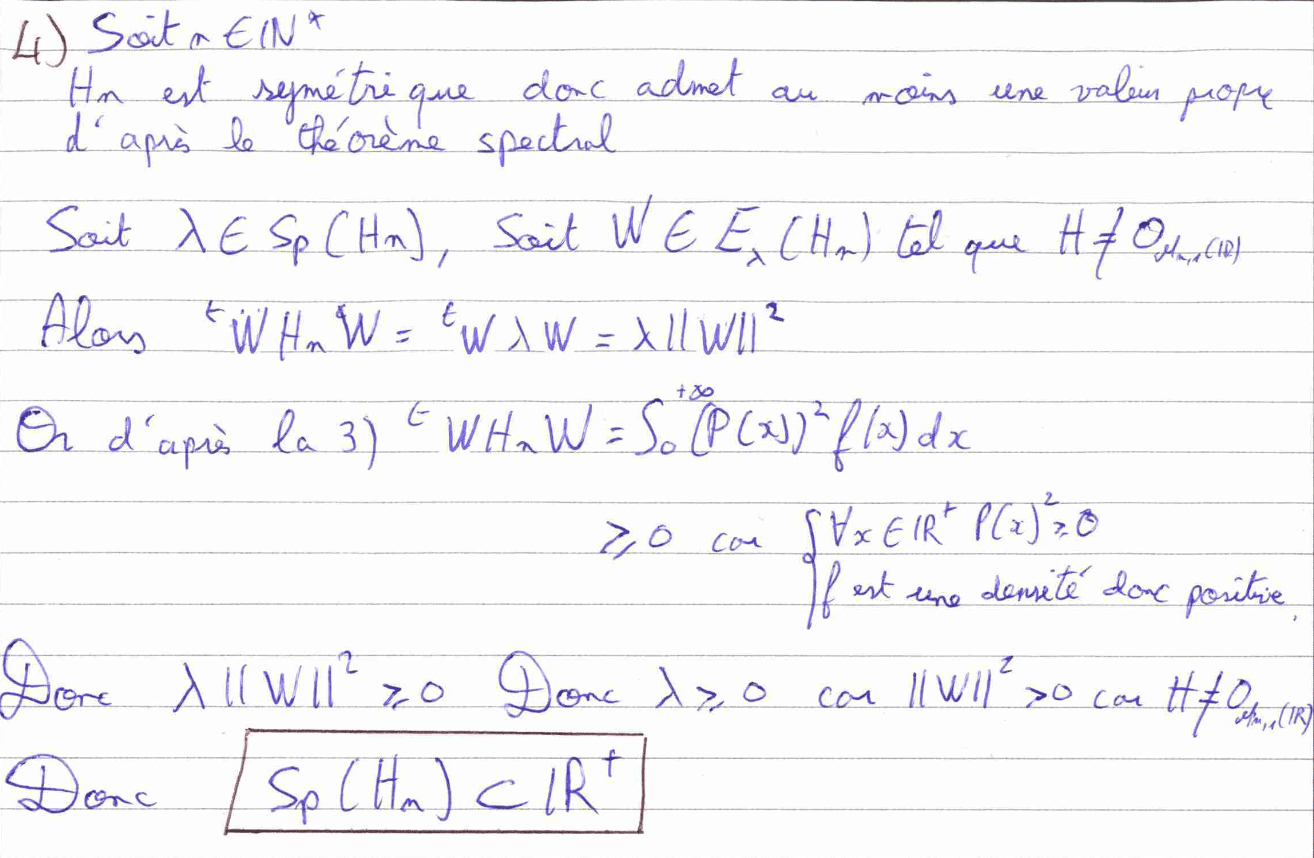 4) Soit n ∈ IN*
Hn est symétrique donc admet au moins une valeur propre
d'après le théorème spectral
Soit λ ∈ Sp(Hn), Soit W ∈ E_λ(Hn) tel que H ≠ 0_{M_{n,1}(IR)}
Alors ᵗW Hn W = ᵗW λ W = λ||W||²
Or d'après la 3) ᵗW Hn W = ∫₀^{+∞} (P(x))² f(x) dx
≥ 0 car { ∀x ∈ IR⁺ P(x)² ≥ 0
f est une densité donc positive.
Donc λ ||W||² ≥ 0 Donc λ ≥ 0 car ||W||² > 0 car H ≠ 0_{M_{n,1}(IR)}
Donc Sp(Hn) ⊂ IR⁺